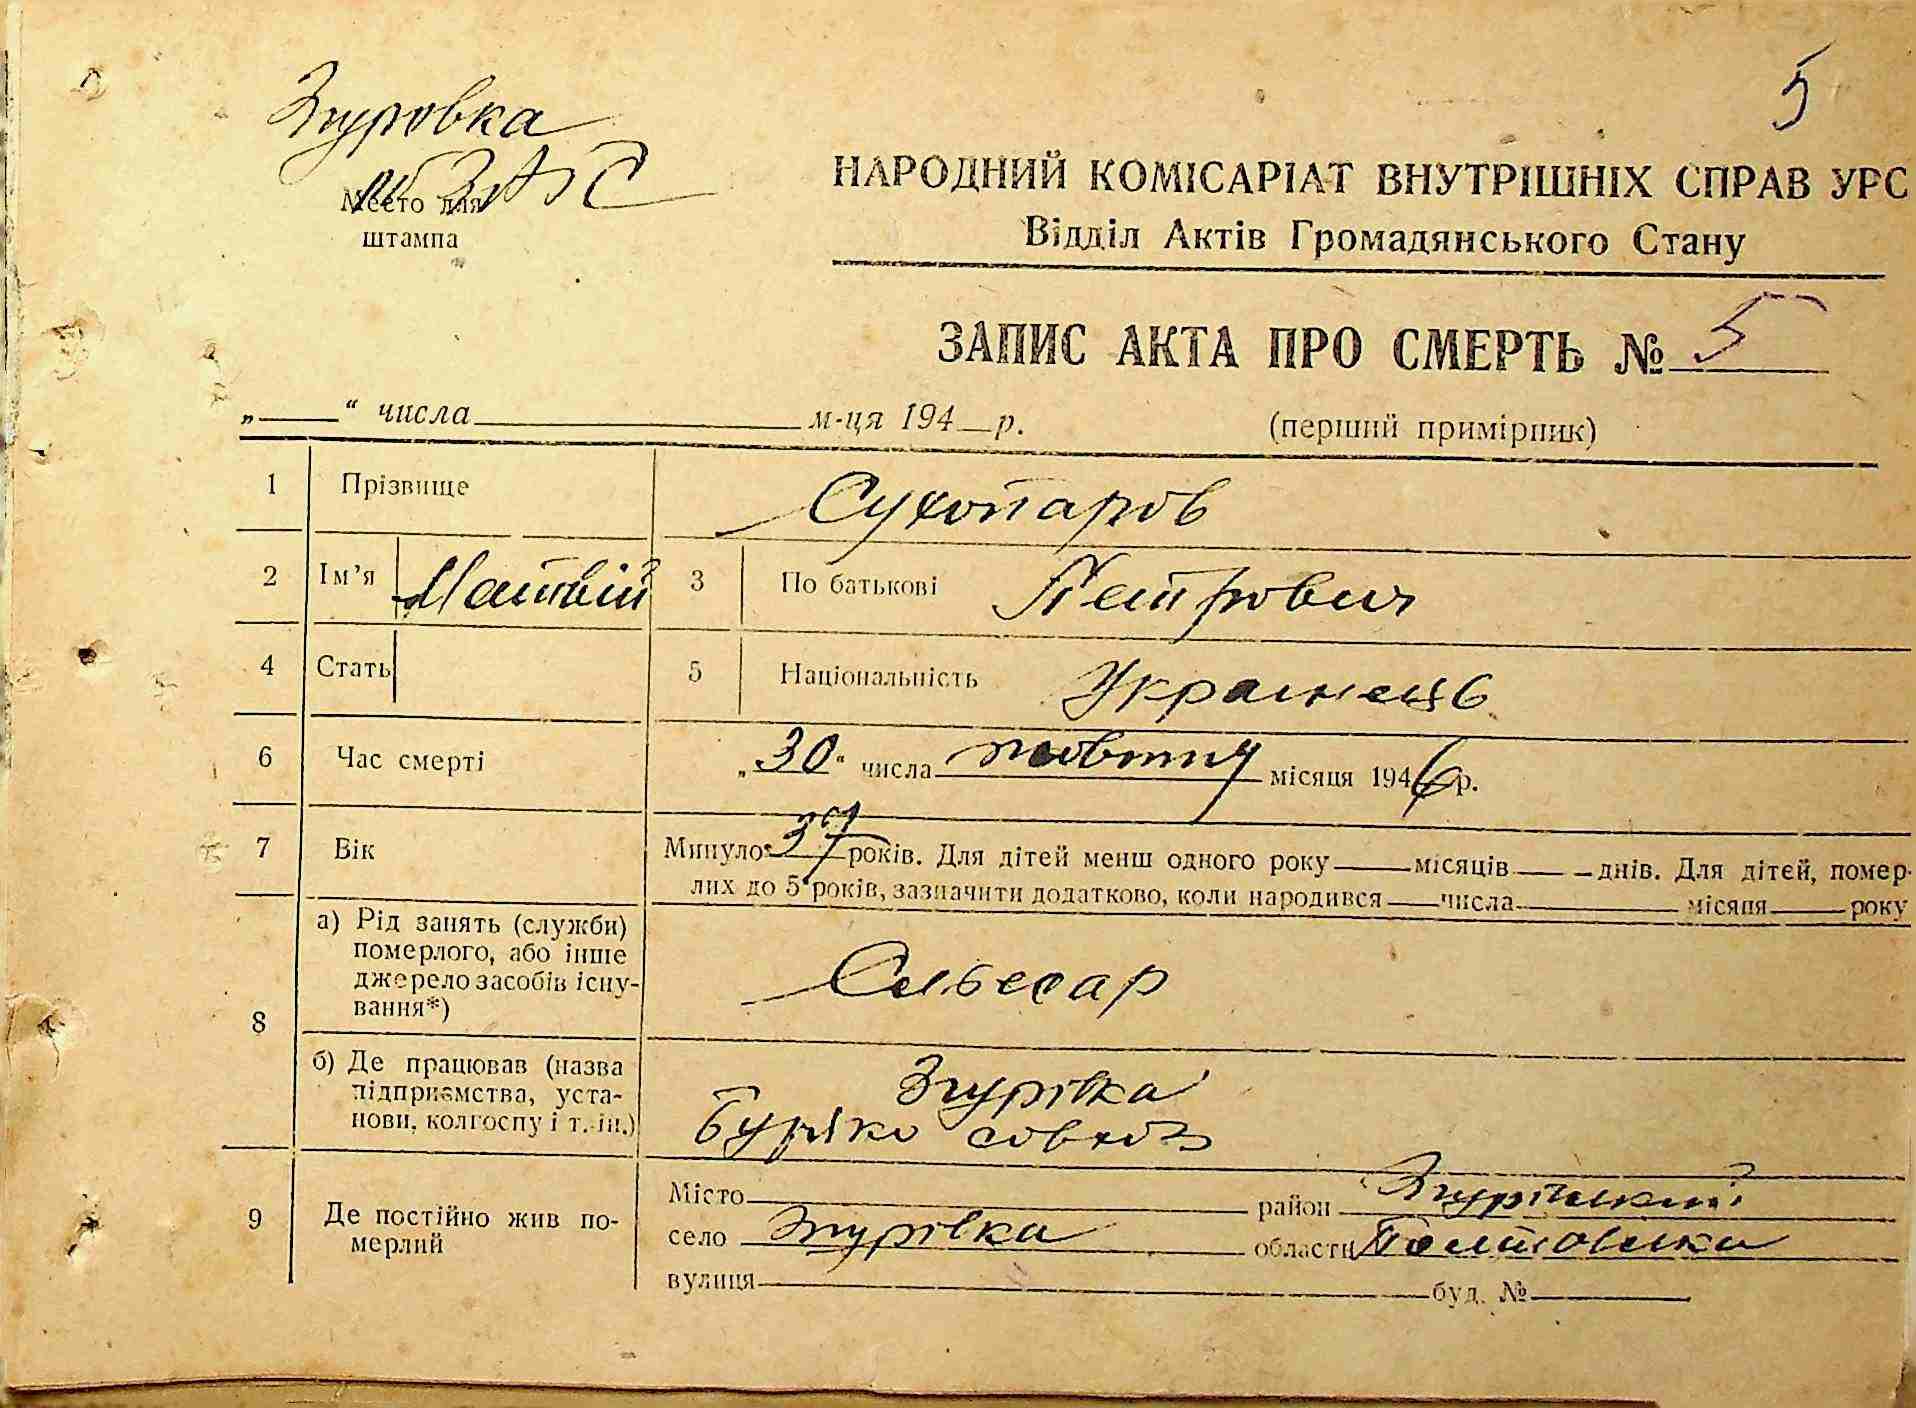 5
Згуровка
ЗАГС
Место для
штампа
НАРОДНИЙ КОМІСАРІАТ ВНУТРІШНІХ СПРАВ УРС
Відділ Актів Громадянського Стану
ЗАПИС АКТА ПРО СМЕРТЬ № 5
„ “ числа м-ця 194 р. (перший примірник)
1 Прізвище Сухопаров
2 Ім’я Матвій 3 По батькові Петрович
4 Стать 5 Національність Украинець
6 Час смерті „30“ числа жовтня місяця 1946 р.
7 Вік Минуло 37 років. Для дітей менш одного року місяців днів. Для дітей, помер-
лих до 5 років, зазначити додатково, коли народився числа місяця року
8 а) Рід занять (служби)
померлого, або інше
джерело засобів існу-
вання*)
Сльесар
б) Де працював (назва
підприємства, уста-
нови, колгоспу і т. ін.)
Згурівка
Буряко совхоз
9 Де постійно жив по-
мерлий
Місто район Згурівський
село Згурівка области Полтовська
вулиця буд. №